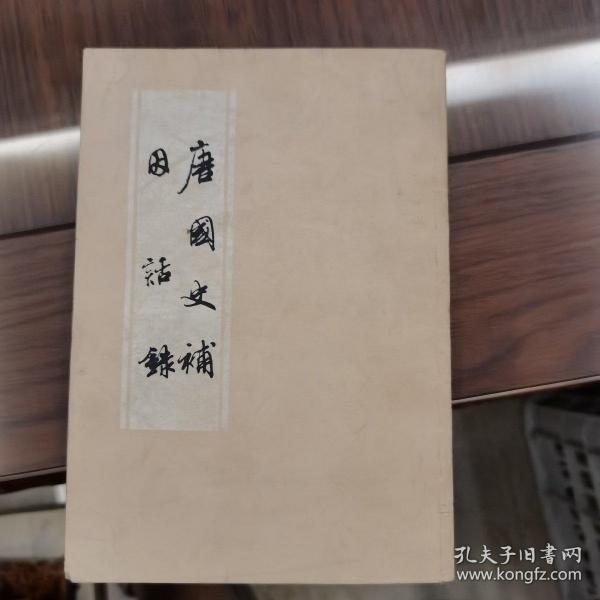 唐國史補
因話錄
孔夫子旧書网
www.kongfz.com